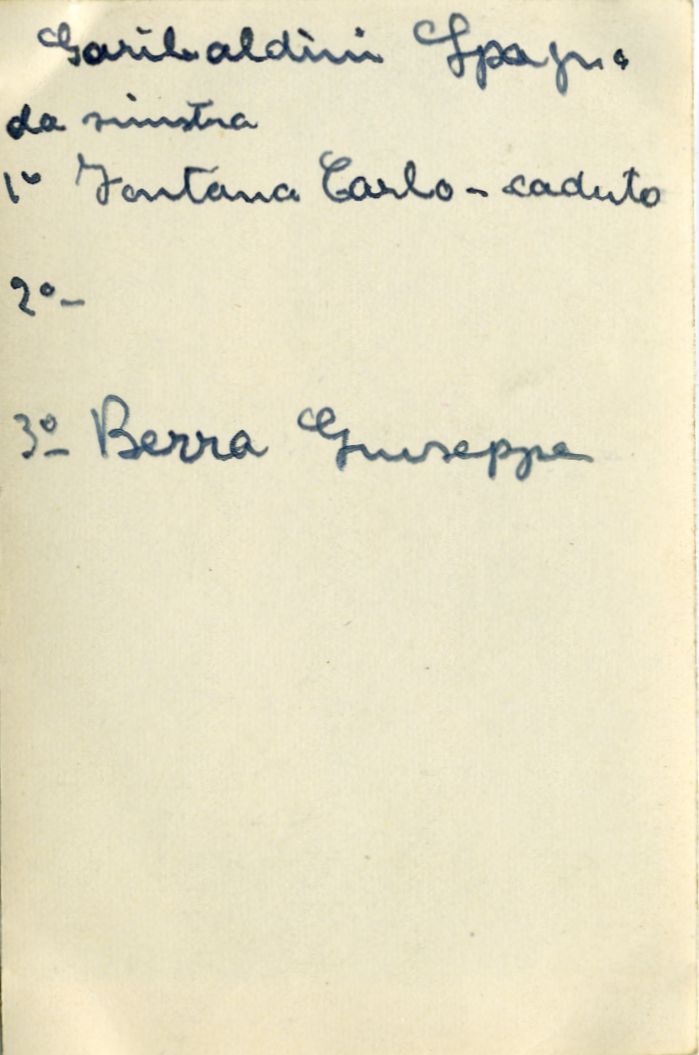 Garibaldini Spagna
da sinistra
1° Fontana Carlo - caduto
2° -
3° - Berra Giuseppe